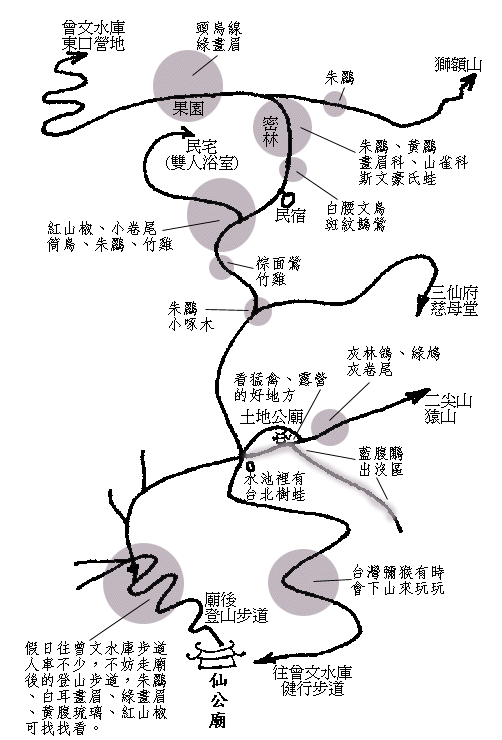 曾文水庫
東口營地
頭烏線
綠畫眉
朱鸝
獅額山
果園
密林
民宅
(雙人浴室)
朱鸝、黃鸝
畫眉科、山雀科
斯文豪氏蛙
民宿
白腰文鳥
斑紋鷦鶯
紅山椒、小卷尾
筒鳥、朱鸝、竹雞
棕面鶯
竹雞
三仙府
慈母堂
朱鸝
小啄木
灰林鴿、綠鳩
灰卷尾
看猛禽、露營
的好地方
二尖山
猿山
土地公廟
藍腹鷴
出沒區
水池裡有
台北樹蛙
台灣獼猴有時
會下山來玩玩
廟後
登山步道
仙公廟
往曾文水庫
健行步道
假日往曾文水庫步道
人車不少，不妨走廟
後的登山步道，朱鸝
、白耳畫眉、綠畫眉
、黃腹琉璃、紅山椒
可找找看。